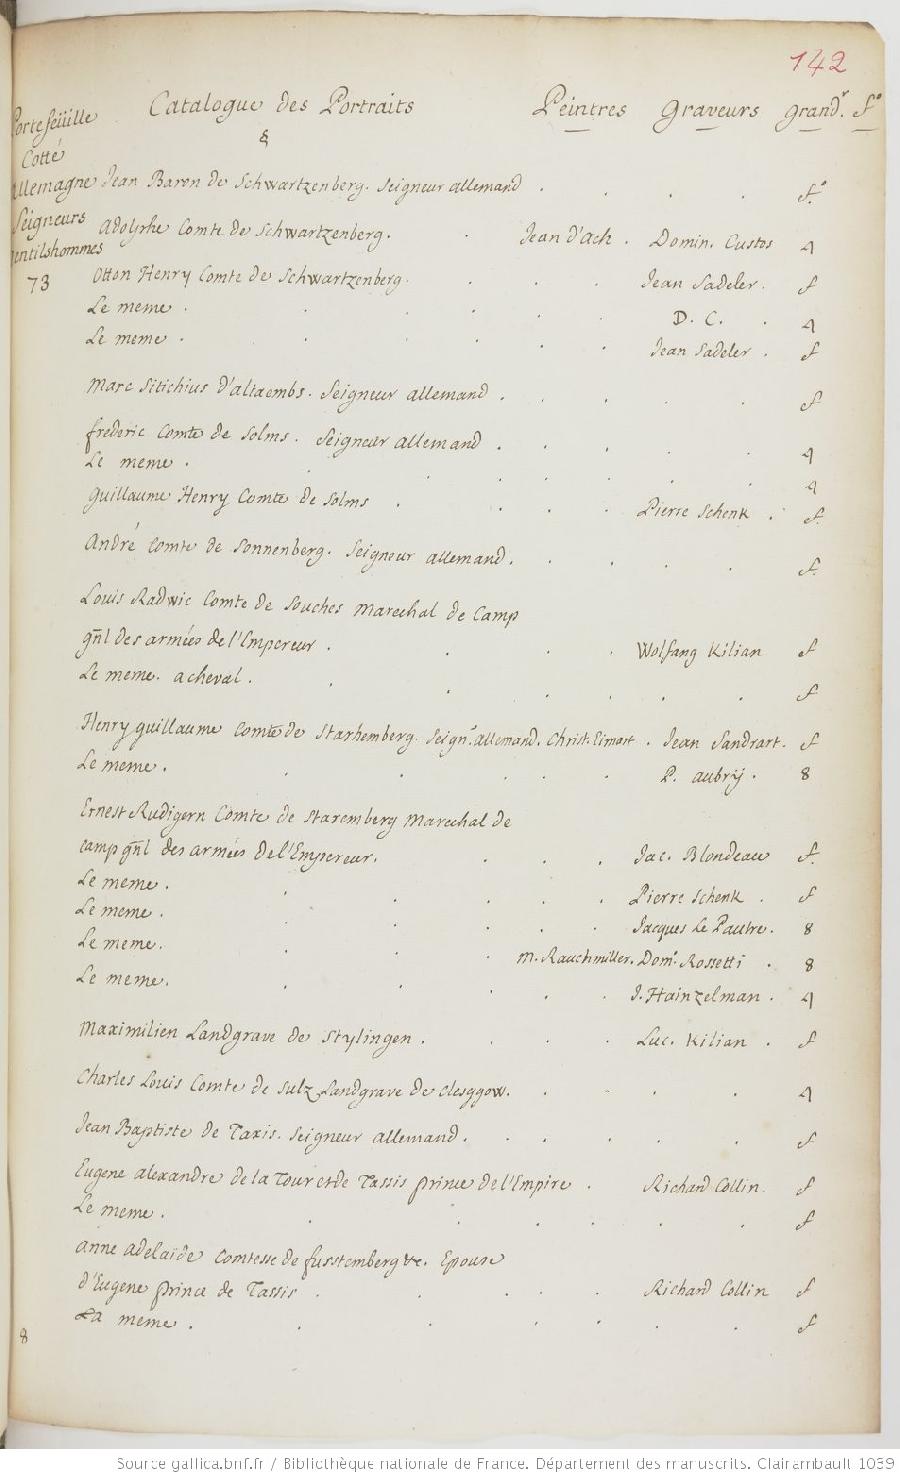 142
Catalogue des Portraits Peintres Graveurs grand.r f.o
§
Portefeüille
Cotté
Allemagne
Seigneurs
Gentilshommes
73
Jean Baron de Schwartzenberg. Seigneur allemand . . . . f.o
Adolphe Comte de Schwartzenberg. . Jean d'Ach . Domin. Custos 4
Otton Henry Comte de Schwartzenberg. . . . Jean Sadeler. f
Le meme . . . . . D. C. . 4
Le meme . . . . . Jean Sadeler . f
Marc Sitichius d'altaembs. Seigneur allemand . . . . . f
frederic Comte de Solms. Seigneur allemand . . . . . 4
Le meme . . . . . . . 4
Guillaume Henry Comte de Solms . . . . Pierre Schenk . f.
André Comte de Sonnenberg. Seigneur allemand. . . . . f.
Louis Radwic Comte de Souches Marechal de Camp
gñl des armées de l'Empereur . . . . Wolfang Kilian f
Le meme. a cheval . . . . . . . f
Henry guillaume Comte de Starhemberg. Seign.r allemand. Christ. Eimart . Jean Sandrart. f
Le meme . . . . . . P. aubrÿ . 8
Ernest Rudigern Comte de Staremberg Marechal de
camp gñl des armées de l'Empereur. . . . Jac. Blondeau f.
Le meme . . . . . . Pierre Schenk . f
Le meme . . . . . Jacques Le Pautre. 8
Le meme. . . M. Rauchmiller. Dom.o Rossetti . 8
Le meme. . . . . . J. Hainzelman . 4
Maximilien Landgrave de Stylingen . . . . Luc. Kilian . f
Charles Louis Comte de Sulz Landgrave de Clesggow. . . . 4
Jean Baptiste de Taxis. Seigneur allemand. . . . . . f
Eugene alexandre de la Tour et de Tassis prince de l'Empire . Richard Collin. f
Le meme . . . . . . . f
Anne Adelaïde Comtesse de fusstemberg &c. Epouse
d'Eugene prince de Tassis . . . . Richard Collin f
La meme . . . . . . . f
8
Source gallica.bnf.fr / Bibliothèque nationale de France. Département des manuscrits. Clairambault 1039